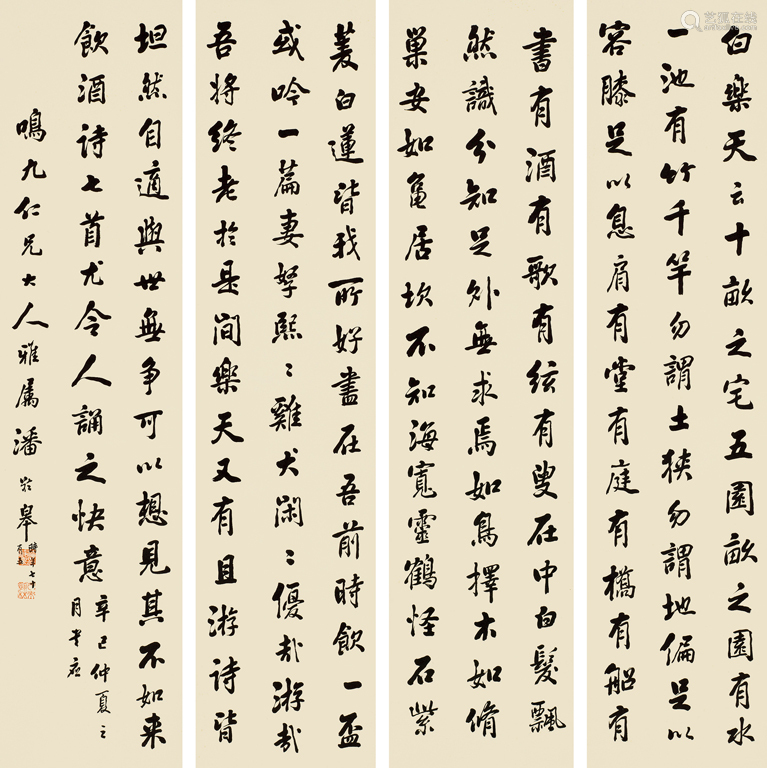 白樂天云十畝之宅五園畝之園有水
一池有竹千竿勿謂土狹勿謂地偏足以
容膝足以息肩有堂有庭有橋有船有
書有酒有歌有弦有叟在中白髮飄
然識分知足外無求焉如鳥擇木如脩
巢安如龜居坎不知海寬靈鶴怪石紫
菱白蓮皆我所好盡在吾前時飲一盃
或吟一篇妻孥熙〻雞犬閑〻優哉游哉
吾將終老於是間樂天又有且游詩皆
坦然自適與世無爭可以想見其不如来
飲酒詩七首尤令人誦之快意
辛巳仲夏之
月
鳴九仁兄大人雅屬潘齡皋
時年七十